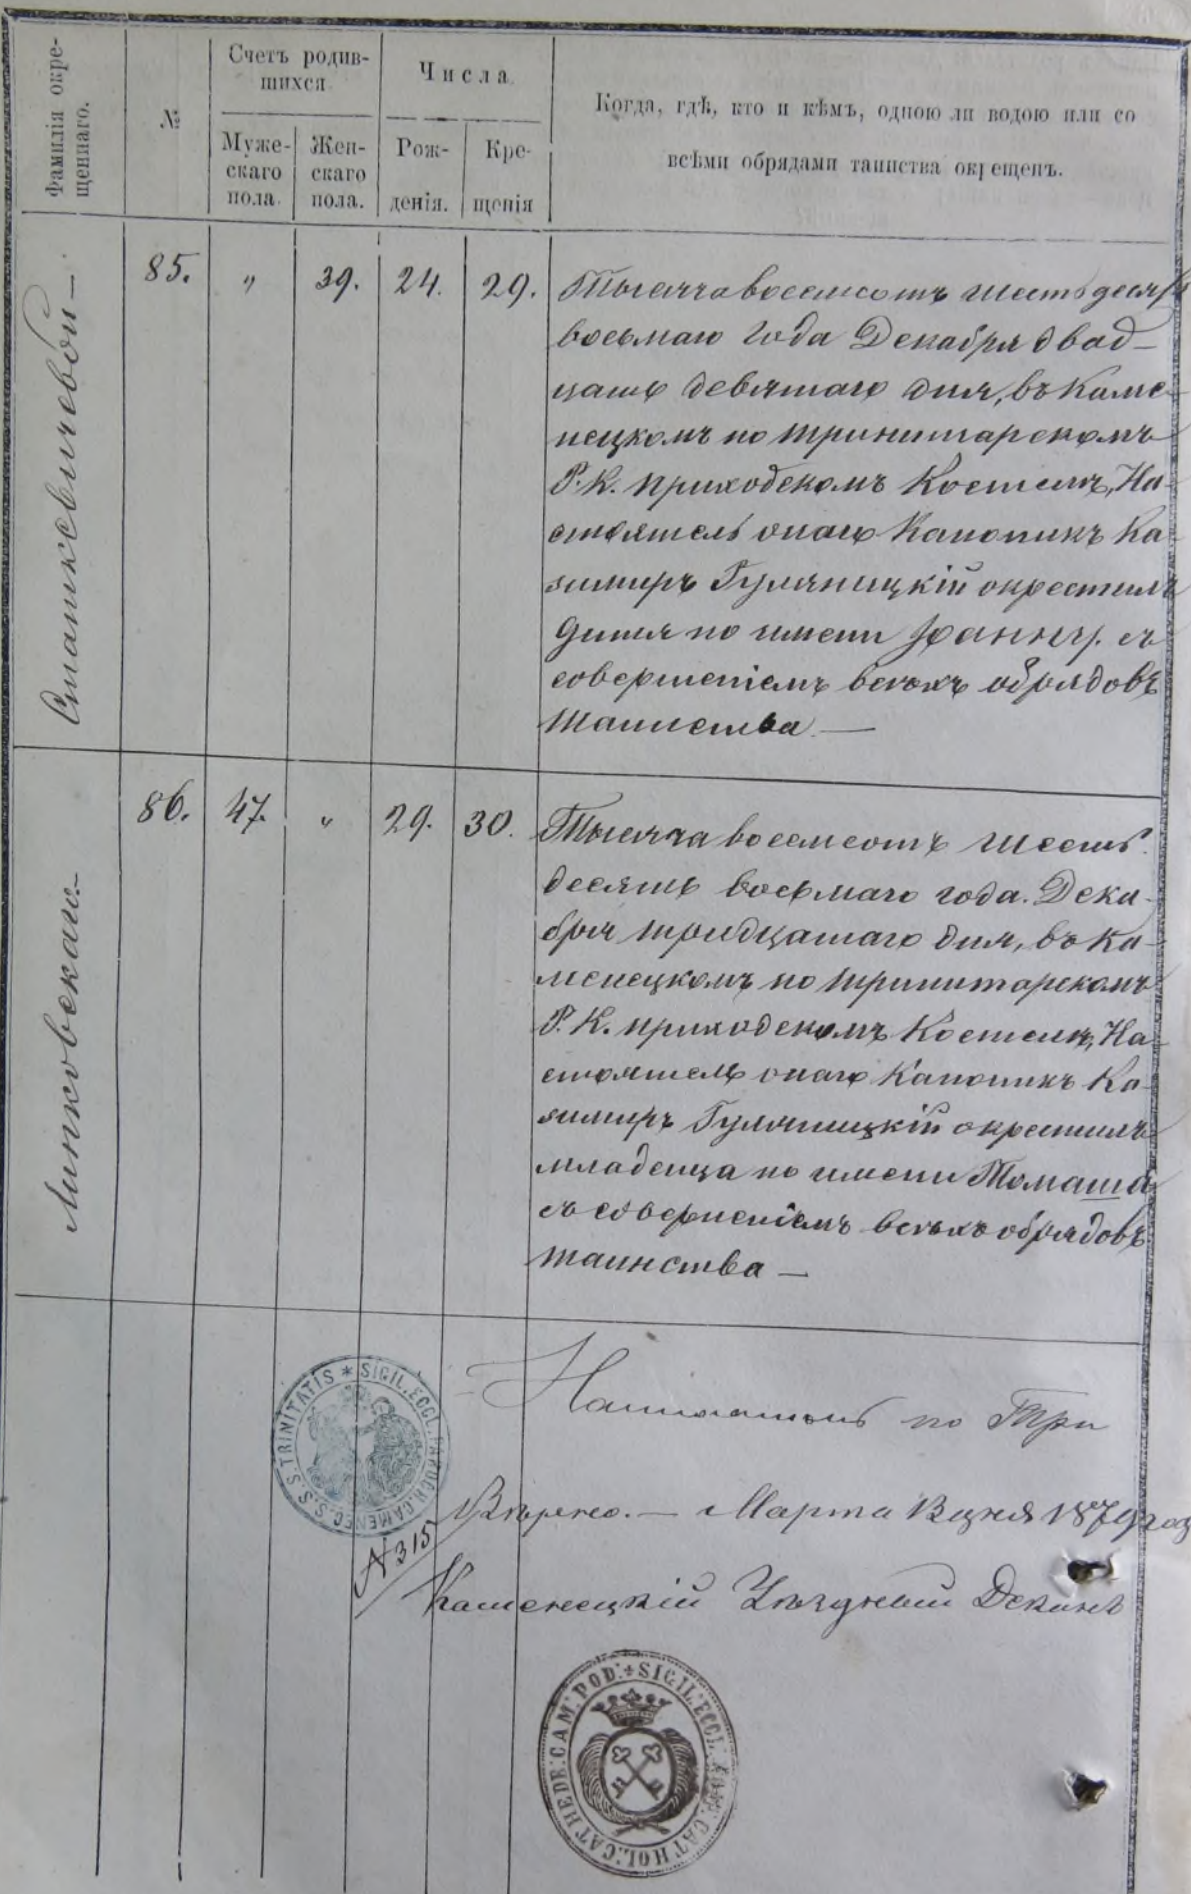 Фамилія окре-
щеннаго.
№
Счетъ родив-
шихся.
Муже-
скаго
пола.
Жен-
скаго
пола.
Числа.
Рож-
денія.
Кре-
щенія
Когда, гдѣ, кто и кѣмъ, одною ли водою или со
всѣми обрядами таинства окрещенъ.
Станкевичевой —
85.
"
39.
24.
29.
Тысяча восемсотъ шестьдесятъ
восьмаго года Декабря двад-
цать девятаго дня, въ Каме-
нецкомъ по тринитарскомъ
Р. К. приходскомъ Костелѣ, На-
стоятель онаго Каноникъ Ка-
зимиръ Гуляницкій окрестилъ
дитя по имени Іоанну. съ
совершеніемъ всѣхъ обрядовъ
таинства. —
Линковскаго.
86.
47.
"
29.
30.
Тысяча восемсотъ шесть
десять восьмаго года. Дека-
бря тридцатаго дня, въ Ка-
менецкомъ по тринитарскомъ
Р. К. приходскомъ Костелѣ, На-
стоятель онаго Каноникъ Ка-
зимиръ Гуляницкій окрестилъ
младенца по имени Томаша
съ совершеніемъ всѣхъ обрядовъ
таинства —
Настоятель по Три
SIGIL. ECCL. PAROCH. CAMENEC. S. S. S. TRINITATIS *
Вѣрно. — Марта 1879 год
N 315
Каменецкій Уѣздный Деканъ
SIGIL: ECCL: CATHOL: CATHEDR: CAM: POD: *